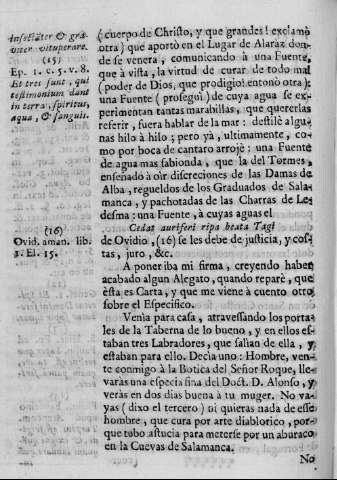 insectãter & gra-
viter vituperare.
(15)
Ep. 1. c. 5. v. 8.
Et tres sunt, qui
testimonium dant
in terra, spiritus,
aqua, & sanguis.
(16)
Ovid. aman. lib.
3. El. 15.
(cuerpo de Christo, y que grandes! exclamò
otra) que aportò en el Lugar de Alaraz don-
de se venera, comunicando à una Fuente,
que à vista, la virtud de curar de todo mal
(poder de Dios, que prodigio! entonò otra);
una Fuente (proseguì) de cuya agua se ex-
perimentan tantas marabillas, que quererlas
referir, fuera hablar de la mar: destilè algu-
nas hilo à hilo; pero yà, ultimamente, co-
mo por boca de cantaro arrojè: una Fuente
de agua mas sabionda, que la del Tormes,
enseñado à oìr discreciones de las Damas de
Alba, regueldos de los Graduados de Sala-
manca, y pachotadas de las Charras de Le-
desma: una Fuente, à cuyas aguas el
Cedat auriferi ripa beata Tagi
de Ovidio, (16) se les debe de justicia, y cos-
tas, juro, &c.
A poner iba mi firma, creyendo haber
acabado algun Alegato, quando reparè, que
èsta es Carta, y que me viene à cuento otro
sobre el Especifico.
Venìa para casa, atravessando los porta-
les de la Taberna de lo bueno, y en ellos es-
taban tres Labradores, que salian de ella, y
estaban para ello. Decìa uno: Hombre, ven-
te conmigo à la Botica del Señor Roque, lle-
varàs una especia fina del Doct. D. Alonso, y
veràs en dos dias buena à tu muger. No va-
yas (dixo el tercero) ni quieras nada de esse
hombre, que cura por arte diablorico, por-
que tubo astucia para meterse por un aburaco
en la Cuevas de Salamanca.
No